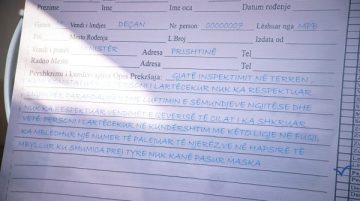 Prezime Ime Ime oca Datum rođenje
Vendi i lindjes DEÇAN Nr person 00000007 Lëshuar nga MPB
Mesto Rođenja L.Broj Izdata od
Vendi i punës MINISTËR Adresa PRISHTINË Tel
Radno Mesto Adresa Tel
Përshkrimi i kundërvajtjes Opis Prekršaja: GJATË INSPEKTIMIT NË TERREN,
PERSONI I LARTËCEKUR NUK KA RESPEKTUAR
LUFTIMIN E SËMUNDJEVE NGJITËSE DHE
NUK KA RESPEKTUAR VENDIMET E QEVERISË TË CILAT I KA SHKRUAR
VETË PERSONI I LARTËCEKUR NË KUNDËRSHTIM ME KËTO LIGJE NË FUQI,
KA MBLEDHUR NJË NUMËR TË PALEJUAR TË NJERËZVE NË HAPSIRË TË
MBYLLUR KU SHUMICA PREJ TYRE NUK KANË PASUR MASKA